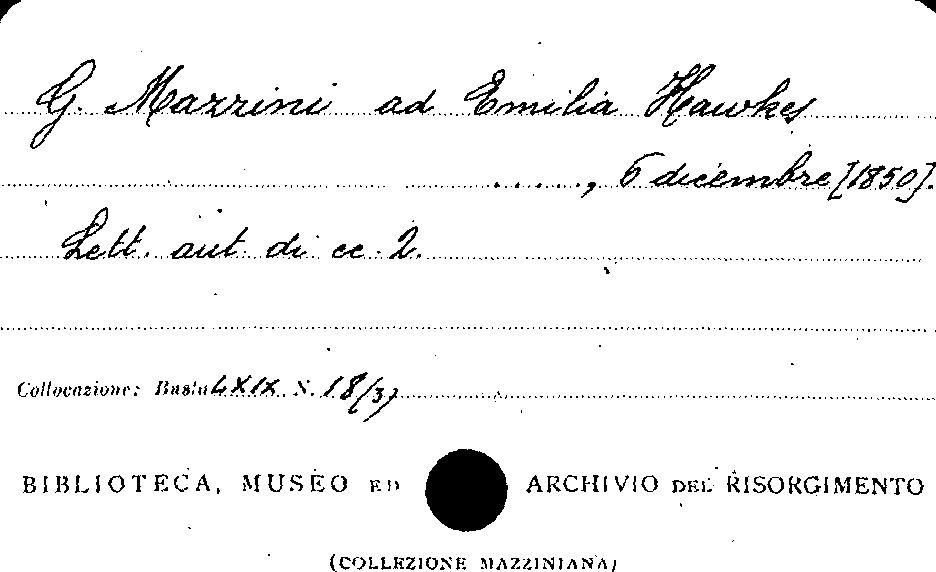 G. Mazzini ad Emilia Hawkes
....., 6 dicembre [1850].
Lett. aut. di cc. 2.
Collocazione: Busta LXIX N. 18/3)
BIBLIOTECA, MUSEO ED ARCHIVIO DEL RISORGIMENTO
(COLLEZIONE MAZZINIANA)